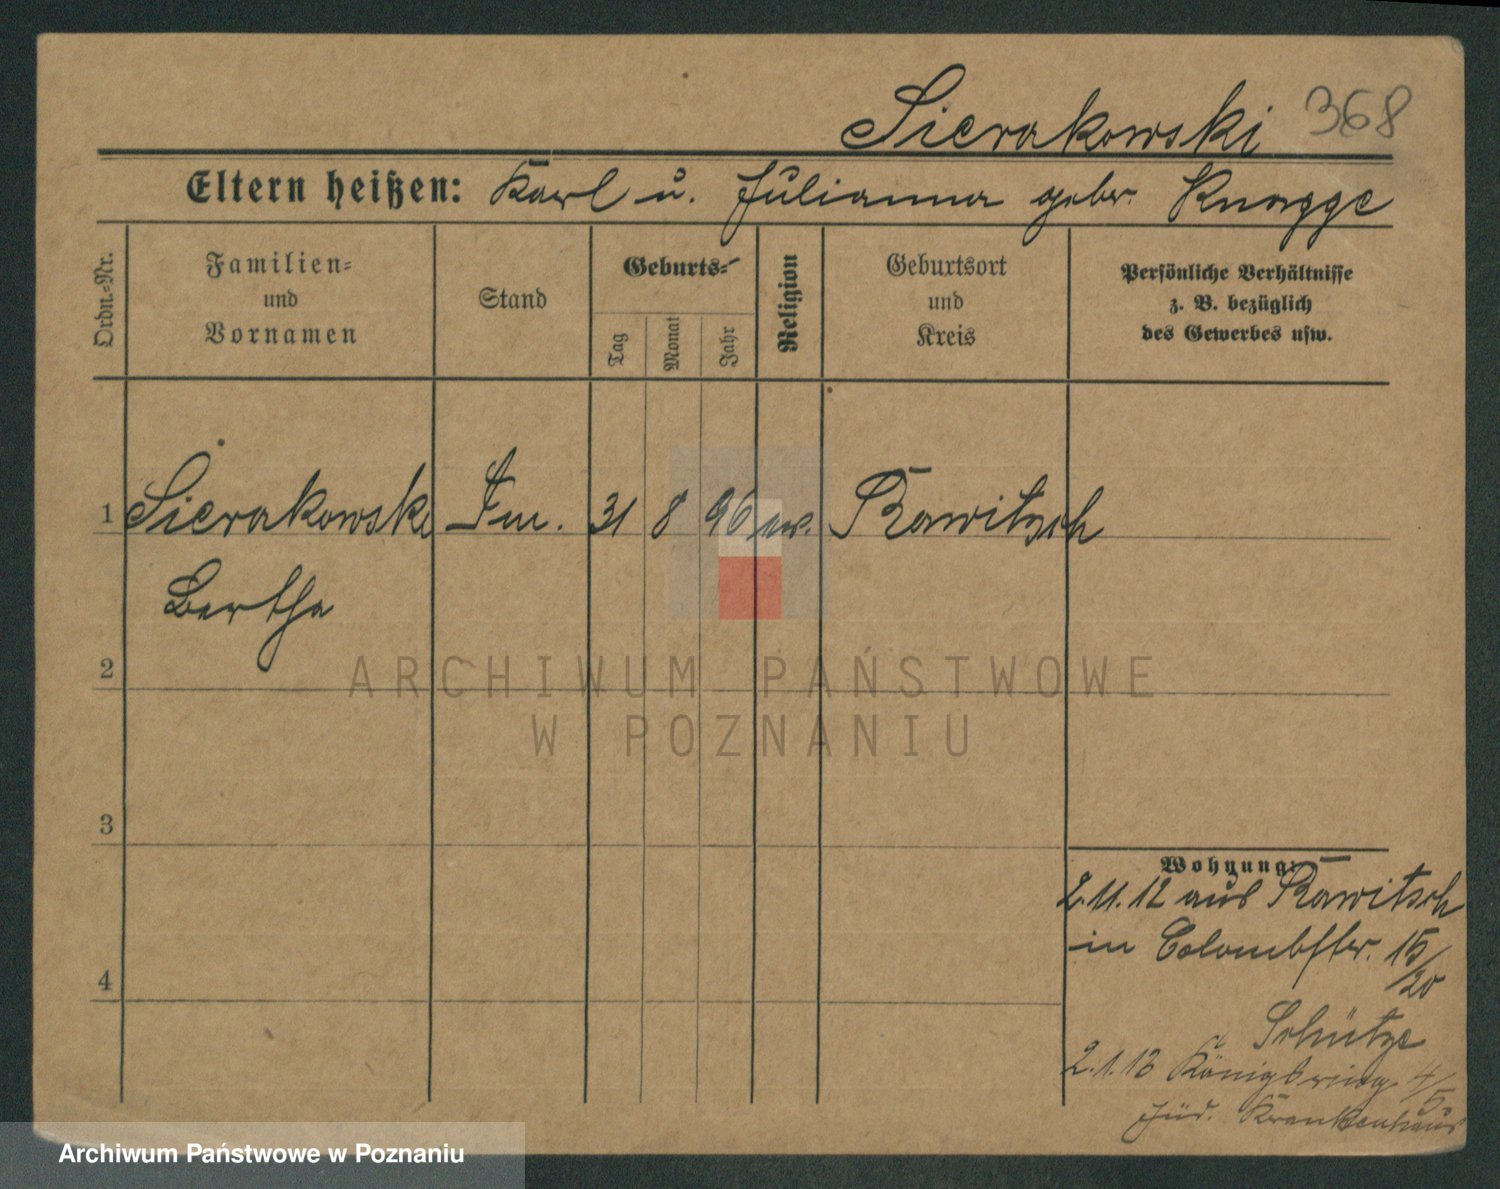 Sierakowski 368
Eltern heißen: Karl u. Julianna gebr. Knagge
Ordn.=Nr.
Familien=
und
Vornamen
Stand
Geburts=
Tag
Monat
Jahr
Religion
Geburtsort
und
Kreis
Persönliche Verhältnisse
z. B. bezüglich
des Gewerbes usw.
1 Sierakowski 31 8 96 ev. Rawitsch
Bertha
2
3
4
Wohnung:
2.11.12 aus Rawitsch
in Colombstr. 15/20
Schütze
2.1.13 Königsring 4/5
Jüd. Krankenhaus
ARCHIWUM PAŃSTWOWE
W POZNANIU
Archiwum Państwowe w Poznaniu